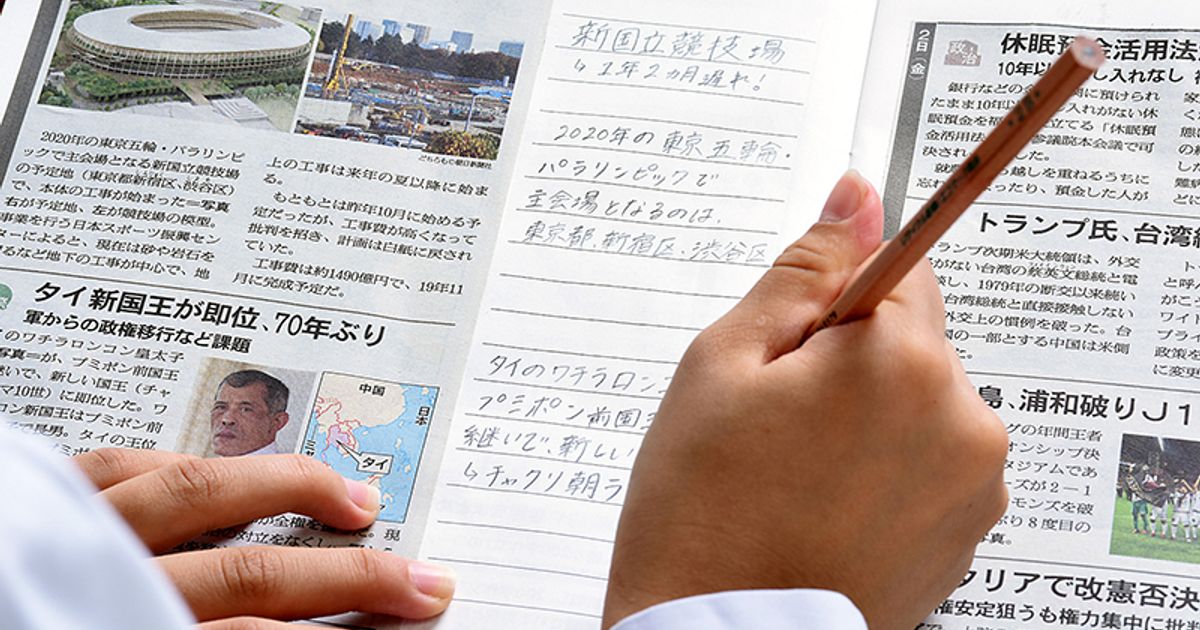 2020年の東京五輪・パラリンピ
ックで主会場となる新国立競技場
の予定地(東京都新宿区、渋谷区)
で、本体の工事が始まった=写真
右が予定地、左が競技場の模型。
事業を行う日本スポーツ振興セン
ターによると、現在は砂や岩石を
るなど地下の工事が中心で、地
どちらもⓒ朝日新聞社
上の工事は来年の夏以降に始ま
る。
もともとは昨年10月に始める予
定だったが、工事費が高くなって
批判を招き、計画は白紙に戻され
ていた。
工事費は約1490億円で、19年11
月に完成予定だ。
タイ新国王が即位、70年ぶり
軍からの政権移行など課題
のワチラロンコン皇太子
写真=が、プミポン前国王
継いで、新しい国王(チャ
マ10世)に即位した。ワ
ロン新国王はプミポン前
長男。タイの王位
中国
日本
タイ
が全権を
の対立をなくし
現
新国立競技場
↳1年2カ月遅れ!
2020年の東京五輪・
パラリンピックで
主会場となるのは、
東京都、新宿区・渋谷区
タイのワチラロン
プミポン前国
継いで、新しい
↳チャクリ朝ラ
2日(金)
政治
休眠預金活用法
10年以
入れなし
銀行などの
に預けられ
たまま10年以
入れがない休
眠預金を福
立てる「休眠預
金活用法
参議院本会議で可
決され
した。
越しを重ねるうちに
忘れ
まったり、預金した人が
トランプ氏、台湾
トランプ次期米大統領は、外交
がない台湾の蔡英文総統と電
し、1979年の断交以来続い
台湾総統と直接接触しない
外交上の慣例を破った。台
国の一部とする中国は米側
た。
島、浦和破りJ1
グの年間王者
オンシップ決
タジアムであ
ーズが2-1
モンズを破
ぶり8度目の
写真。
タリアで改憲否決
権安定狙うも権力集中に批判